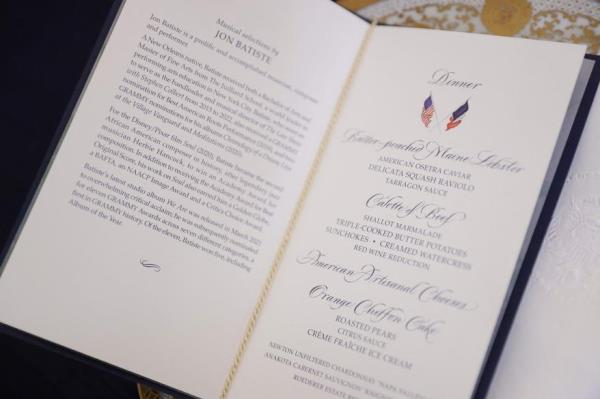 Musical selections by
JON BATISTE
Jon Batiste is a prolific and accomplished musician, composer
and performer.
A New Orleans native, Batiste received both a Bachelor of Arts and
Master of Fine Arts from The Juilliard School, a world leader in
performing arts education in New York City. Batiste was
to serve as the bandleader and musical director of The Late Show
with Stephen Colbert from 2015 to 2022, also received a GRAMMY
nomination for Best American Roots Performance and two
GRAMMY nominations for his albums Chronology of a Dream: Live
at the Village Vanguard and Meditations (2020).
For the Disney/Pixar film Soul (2020), Batiste became the second
African American composer in history, after legendary jazz
musician Herbie Hancock, to win an Academy Award for
composition. In addition to receiving the Academy Award for Best
Original Score, his work on Soul also earned him a Golden Globe,
a BAFTA, an NAACP Image Award and a Critics' Choice Award.
Batiste's latest studio album We Are was released in March 2021
to overwhelming critical acclaim; he was subsequently nominated
for eleven GRAMMY Awards across seven different categories, a
first in GRAMMY history. Of the eleven, Batiste won five, including
Album of the Year.
Dinner
Butter-poached Maine Lobster
AMERICAN OSETRA CAVIAR
DELICATA SQUASH RAVIOLO
TARRAGON SAUCE
Calotte of Beef
SHALLOT MARMALADE
TRIPLE-COOKED BUTTER POTATOES
SUNCHOKES • CREAMED WATERCRESS
RED WINE REDUCTION
American Artisanal Cheeses
Orange Chiffon Cake
ROASTED PEARS
CITRUS SAUCE
CRÈME FRAÎCHE ICE CREAM
NEWTON UNFILTERED CHARDONNAY "NAPA VALLEY"
ANAKOTA CABERNET SAUVIGNON "KNIGHTS
ROEDERER ESTATE